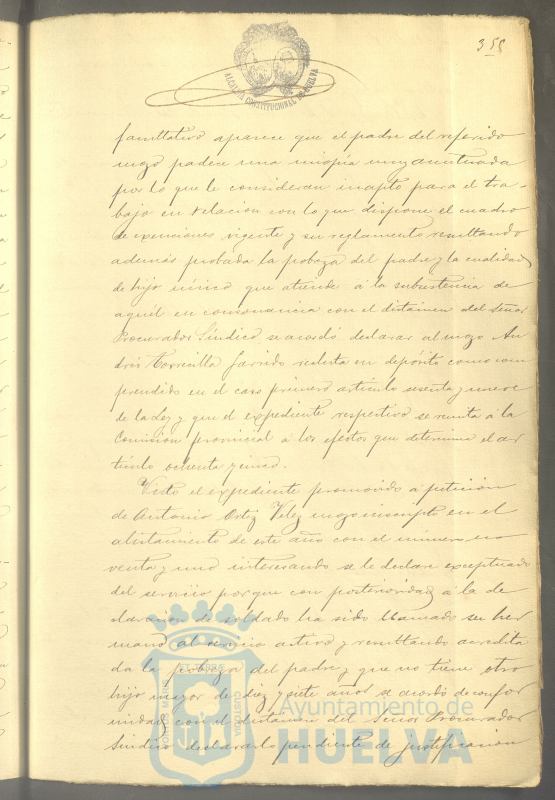 355
ALCALDIA CONSTITUCIONAL DE HUELVA
facultativo aparece que el padre del referido
mozo padece una miopía muy acentuada
por lo que le consideran inapto para el tra-
bajo en relacion con lo que dispone el cuadro
de exenciones vigente y su reglamento resultando
además probada la pobreza del padre y la cualidad
de hijo único que atiende á la subsistencia de
aquél en consonancia con el dictámen del Señor
Procurador Síndico se acordó declarar al mozo An
drés Torricilla Garrido recluta en depósito como com
prendido en el caso primero artículo sesenta y nueve
de la Ley y que el expediente respectivo se remita á la
Comision provincial á los efectos que determina el ar
tículo ochenta y cinco.
Visto el expediente promovido á peticion
de Antonio Ortiz Velez mozo inscripto en el
alistamiento de este año con el número no
venta y uno interesando se le declare exceptuado
del servicio porque con posterioridad á la de
claracion de soldado ha sido llamado su her
mano al servicio activo y resultando acredita
da la pobreza del padre y que no tiene otro
hijo mayor de diez y siete años se acordó de confor
midad con el dictamen del Señor Procurador
Síndico declararlo pendiente de justificacion
Ayuntamiento de
HUELVA